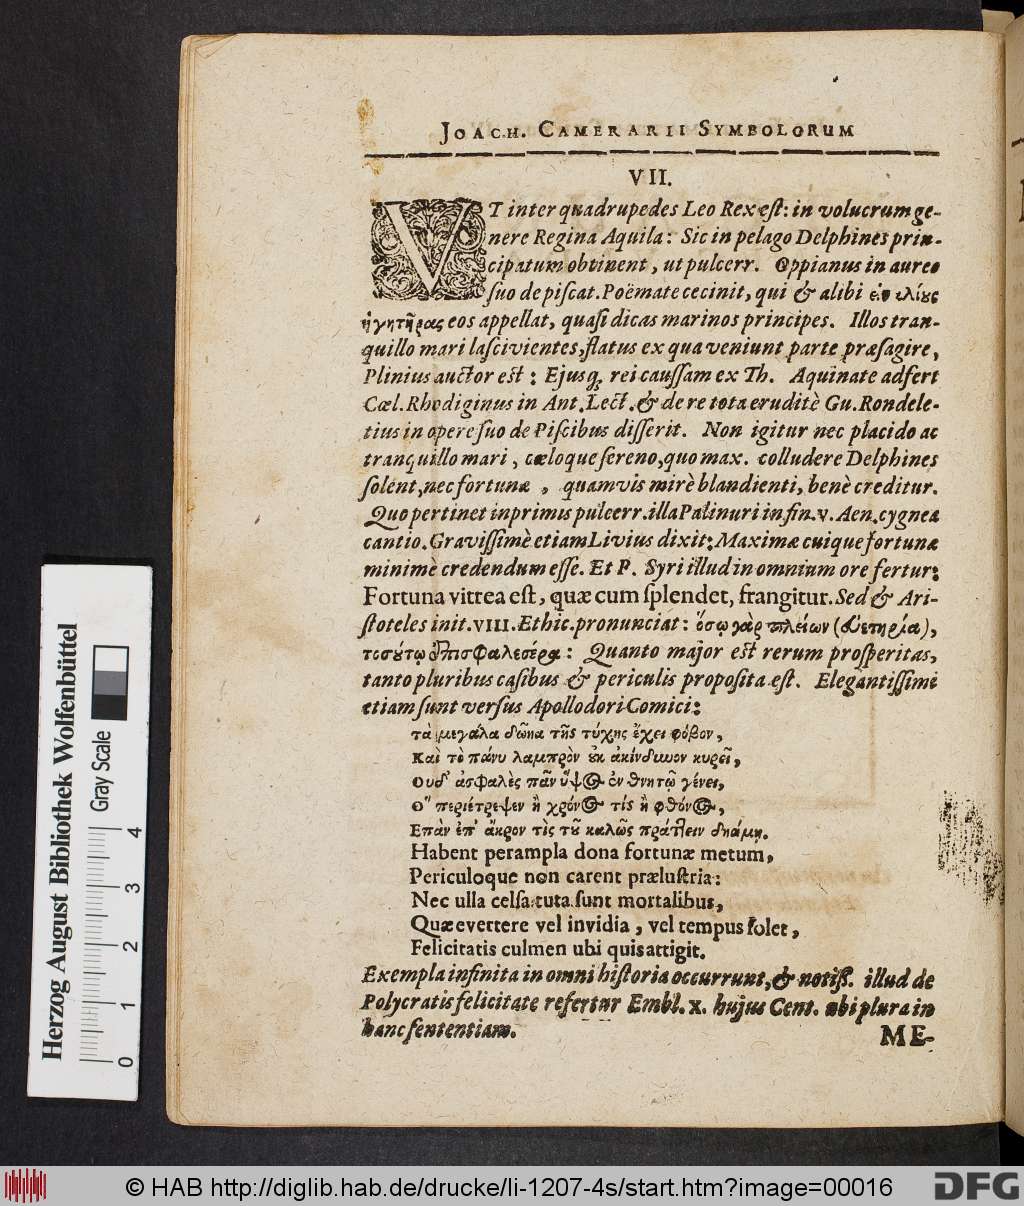 JOACH. CAMERARII SYMBOLORUM
VII.
VT inter quadrupedes Leo Rex est: in volucrum ge-
nere Regina Aquila: Sic in pelago Delphines prin-
cipatum obtinent, ut pulcerr. Oppianus in aureo
suo de piscat. Poëmate cecinit, qui & alibi
ἡγητῆρας eos appellat, quasi dicas marinos principes. Illos tran-
quillo mari lascivientes, flatus ex qua veniunt parte præsagire,
Plinius auctor est: Ejusq; rei caussam ex Th. Aquinate adfert
Cœl. Rhodiginus in Ant. Lect. & de re tota eruditè Gu. Rondele-
tius in opere suo de Piscibus disserit. Non igitur nec placido ac
tranquillo mari, cæloque sereno, quo max. colludere Delphines
solent, nec fortunæ, quamvis mirè blandienti, benè creditur.
Quo pertinet inprimis pulcerr. illa Palinuri in fin. v. Aen. cygnea
cantio. Gravissimè etiam Livius dixit: Maximæ cuique fortunæ
minimè credendum esse. Et P. Syri illud in omnium ore fertur:
Fortuna vitrea est, quæ cum splendet, frangitur. Sed & Ari-
stoteles init. VIII. Ethic. pronunciat: ὅσῳ γὰρ πλείων (εὐετηρία),
τοσούτῳ ἐπισφαλεσέρα: Quanto major est rerum prosperitas,
tanto pluribus casibus & periculis proposita est. Elegantissimi
etiam sunt versus Apollodori Comici:
τὰ μεγάλα δῶρα τῆς τύχης ἔχει φόβον,
Καὶ τὸ πάνυ λαμπρὸν οὐκ ἀκίνδυνον κυρεῖ,
Οὐδ' ἀσφαλὲς πᾶν ὕψος ἐν θνητῷ γένει,
Ὃ περιέτρεψεν ἢ χρόνος τὶς ἢ φθόνος,
Ἐπὰν ἐπ' ἄκρον τὶς τοῦ καλῶς πράττειν δράμῃ.
Habent perampla dona fortunæ metum,
Periculoque non carent prælustria:
Nec ulla celsa tuta sunt mortalibus,
Quæ evertere vel invidia, vel tempus solet,
Felicitatis culmen ubi quis attigit.
Exempla infinita in omni historia occurrunt, & notiss. illud de
Polycratis felicitate refertur Embl. x. hujus Cent. ubi plura in
hanc sententiam.
ME-
Herzog August Bibliothek Wolfenbüttel
Gray Scale
0 1 2 3 4
© HAB http://diglib.hab.de/drucke/li-1207-4s/start.htm?image=00016
DFG